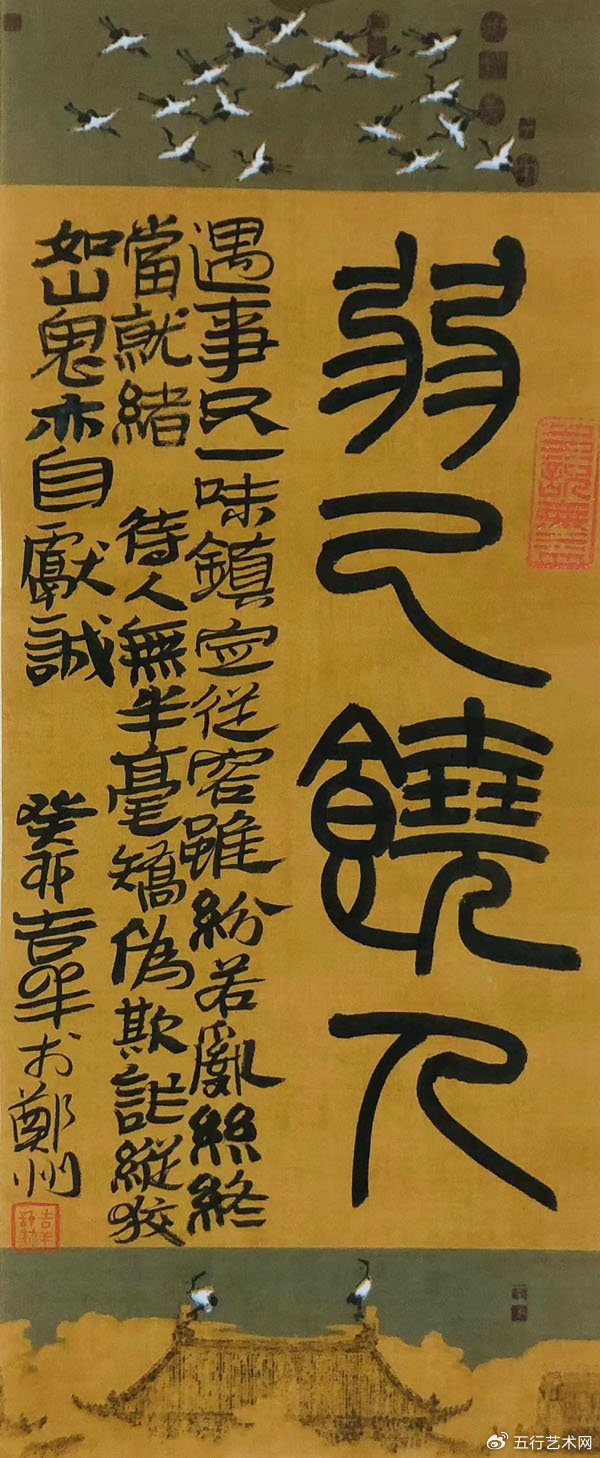 弱己饒人
遇事只一味鎮定從容雖紛若亂絲終
當就緒 待人無半毫矯偽欺詐縱狡
如山鬼亦自獻誠 癸卯吉羊於鄭州
五行艺术网